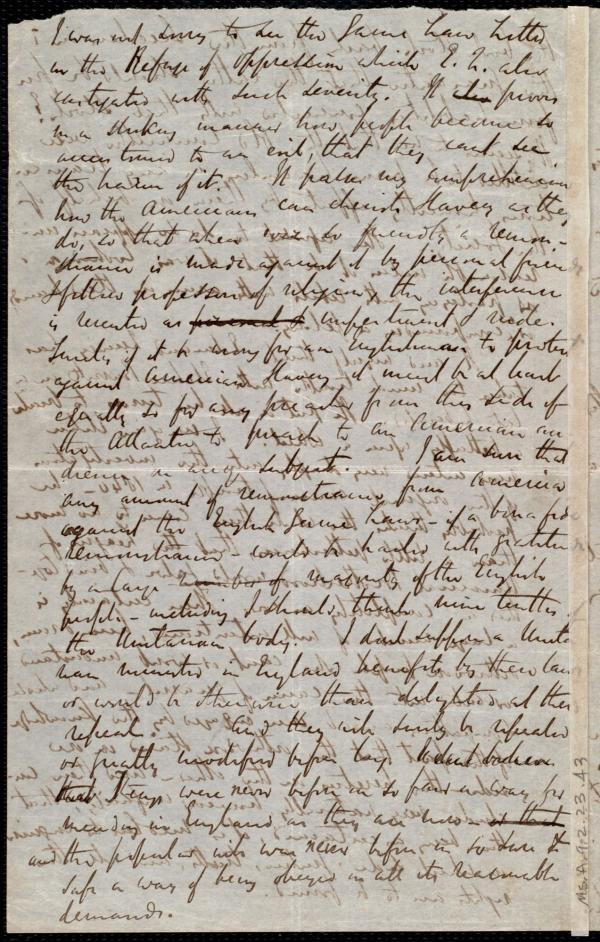 I was not sorry to see the Game Laws hitted
in the Refuge of Oppression which E. Q. also
castigated with such severity. It proves
in a striking manner how people become so
accustomed to an evil, that they can't see
the harm of it. It passes my comprehension
how the Americans can cherish Slavery as they
do, so that when so friendly a remon-
strance is made against it by personal friends
& fellow professors of religion, the interference
is resented as impertinent & rude.
Surely if it be wrong for an Englishman to protest
against American Slavery, it must be at least
equally so for any preacher from this side of
the Atlantic to preach to an American au
dience on any subject. I am sure that
any amount of remonstrance from America
against the English Game Laws - if a bona fide
Remonstrance - would be hailed with gratitude
by a large majority of the English
people - including I should think nine tenths
the Unitarian body. I don't suppose a Unita
rian minister in England benefits by these laws
or would be otherwise than delighted at their
repeal. And they will surely be repealed
or greatly modified before long.
Things were never before in so fair a way for
mending in England as they are now
and the popular will was never before in so sure &
safe a way of being obeyed in all its reasonable
demands.
Ms. A. 9. 2. 23. 43